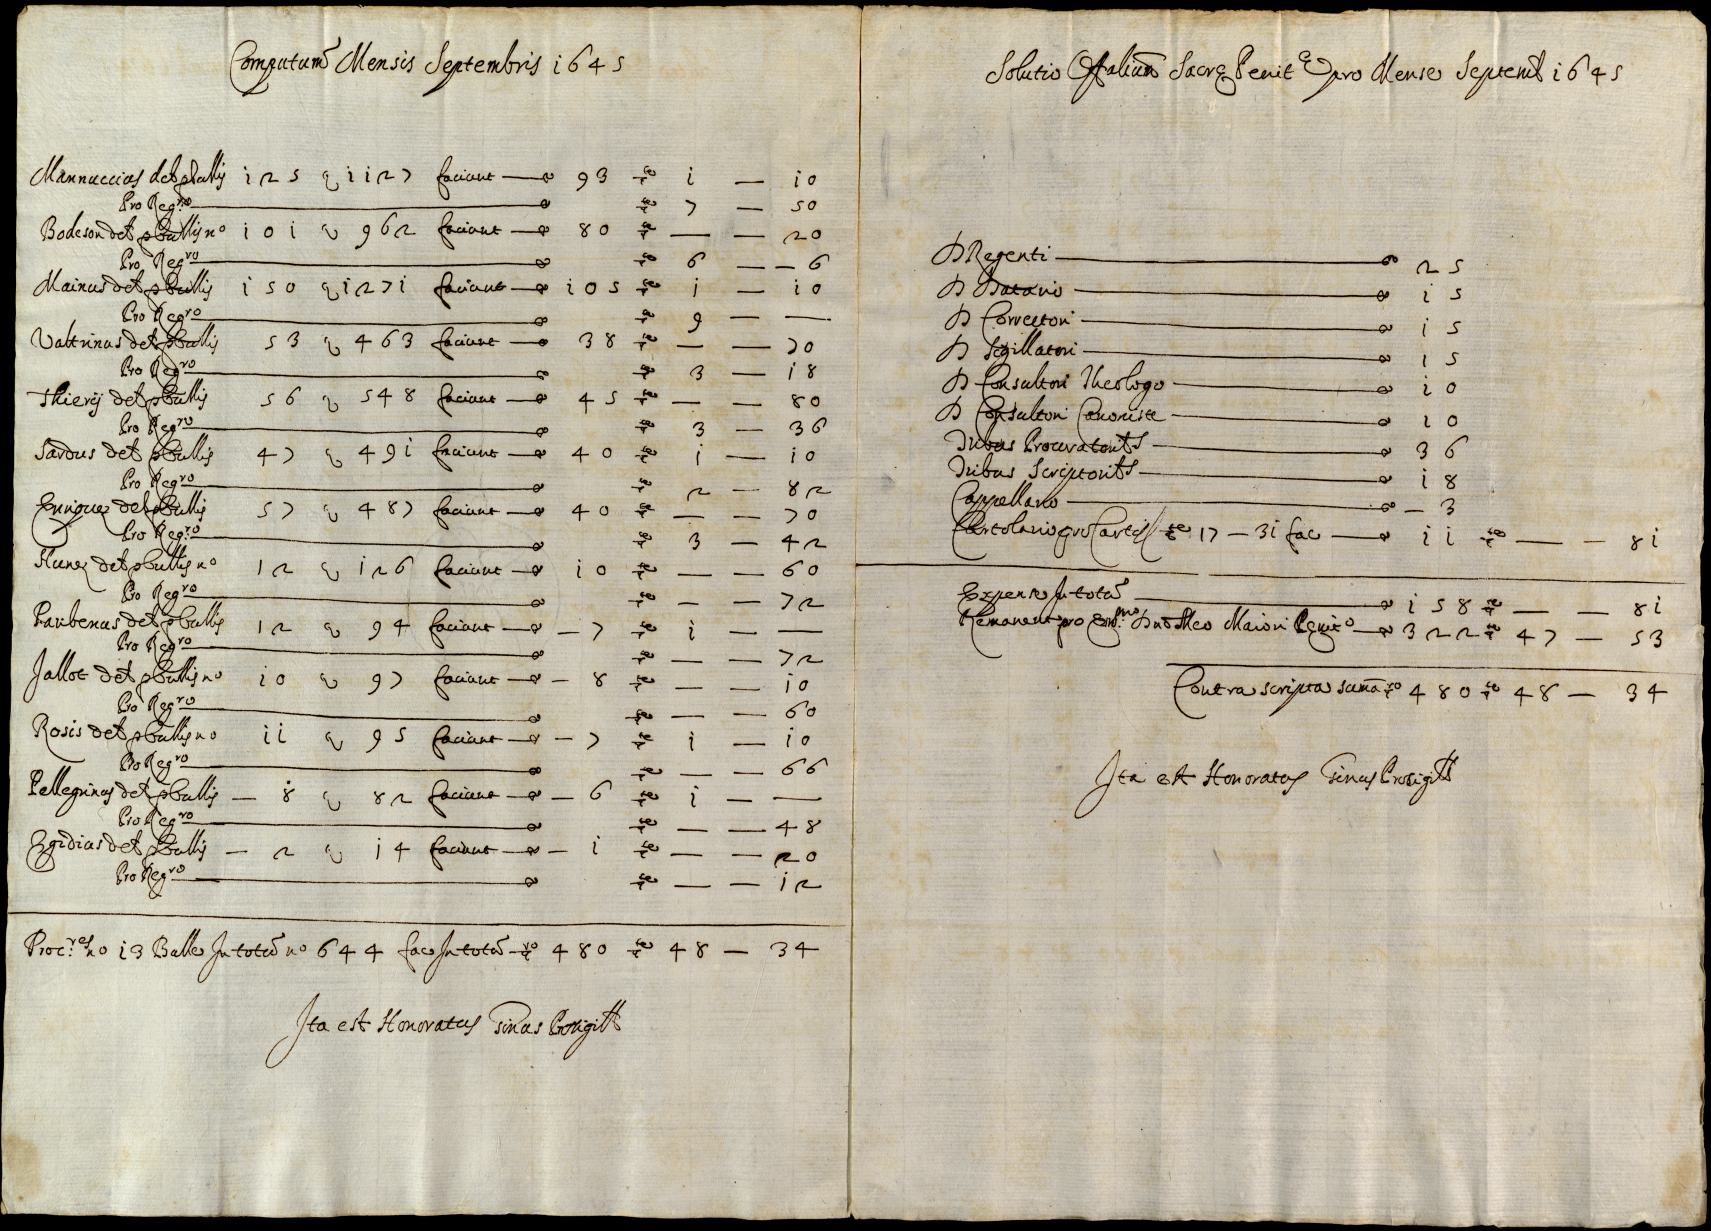 Computum Mensis Septembris 1645
Mannuccius det pbullis 125 q 1127 faciunt — 93 1 — 10
Pro Regro — 7 — 50
Bodeson det pbullis no 101 q 962 faciunt — 80 — — 20
Pro Regro — 6 — — 6
Mainus det pbullis 150 q 1271 faciunt — 105 1 — 10
Pro Regro — 9 — —
Valtrinus det pbullis 53 q 463 faciunt — 38 — — 70
Pro Regro — 3 — 18
Thierij det pbullis 56 q 548 faciunt — 45 — — 80
Pro Regro — 3 — 36
Sardus det pbullis 47 q 491 faciunt — 40 1 — 10
Pro Regro — 2 — 82
Enriquez det pbullis 57 q 487 faciunt — 40 — — 70
Pro Regro — 3 — 42
Nunez det pbullis no 12 q 126 faciunt — 10 — — 60
Pro Regro — — — 72
det pbullis 12 q 94 faciunt — 7 1 — —
Pro Regro — — — 72
Jallot det pbullis no 10 q 97 faciunt — 8 — — 10
Pro Regro — — — 60
Rosis det pbullis no 11 q 95 faciunt — 7 1 — 10
Pro Regro — — — 66
Pellegrinus det pbullis — 8 q 82 faciunt — 6 1 — —
Pro Regro — — — 48
Egidius det pbullis — 2 q 14 faciunt — 1 — — 20
Pro Regro — — — 12
Proc.res no 13 Bulle In totum no 644 fac In totum 480 48 — 34
Ita est Honoratus
Solutio Offalium Sacre Penite pro Mense Septemb 1645
D Regenti — 25
D Datario — 15
D Correctori — 15
D Sigillatori — 15
D Consultori Theologo — 10
D Consultori Canoniste — 10
Dubus Procuratoribus — 36
Dubus Scriptoribus — 18
Cappellano — 3
17 — 31 fac — 11 — — 81
Expense In totum — 158 — — 81
Remanent pro Emmo Maiori Penit.o — 322 47 — 53
Contra scripta suma 480 48 — 34
Ita est Honoratus